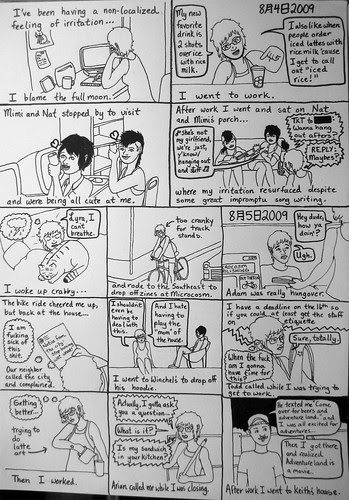 I've been having a non-localized
feeling of irritation...
I blame the full moon.
My new
favorite
drink is
2 shots
over ice
with rice
milk.
8月4日2009
I also like when
people order
iced lattes with
rice milk 'cause
I get to call
out "iced
rice!"
I went to work.
Mimi and Nat stopped by to visit
and were being all cute at me.
After work I went and sat on Nat
and Mimi's porch...
She's not
my girlfriend,
we're just,
y'know,
hanging out
and stuff
TXT to
Wanna hang
out after?
REPLY:
Maybe?
where my irritation resurfaced despite
some great impromptu song writing.
Lyra, I
can't
breathe.
I woke up crabby...
too cranky
for track
stands.
and rode to the Southeast to
drop off zines at Microcosm.
8月5日2009
Hey dude,
how ya
doin'?
Ugh.
Adam was really hungover.
The bike ride cheered me up,
but back at the house...
I am
fucking
sick of
this
shit.
Our neighbor
called the city
and complained.
I shouldn't
even be
having to
deal with
this.
And I hate
having to
play the
"mom" of
the house.
I went to Winchel's to drop off
his hoodie.
I have a deadline on the 16th so
if you could at least get the stuff
on etiquette
Sure, totally.
When the fuck
am I gonna
have time for
this?
Todd called while I was trying to
get to work.
Getting
better...
trying to
do
latte
art
Then I worked.
Actually, I gotta ask
you a question...
What is it?
Is my sandwich
in your kitchen?
Arian called me while I was closing.
He texted me "Come
over for beers and
adventure land." and
I was all excited for
adventures...
Then I got there
and realized
Adventureland is
a movie.
After work I went to Keith's house.